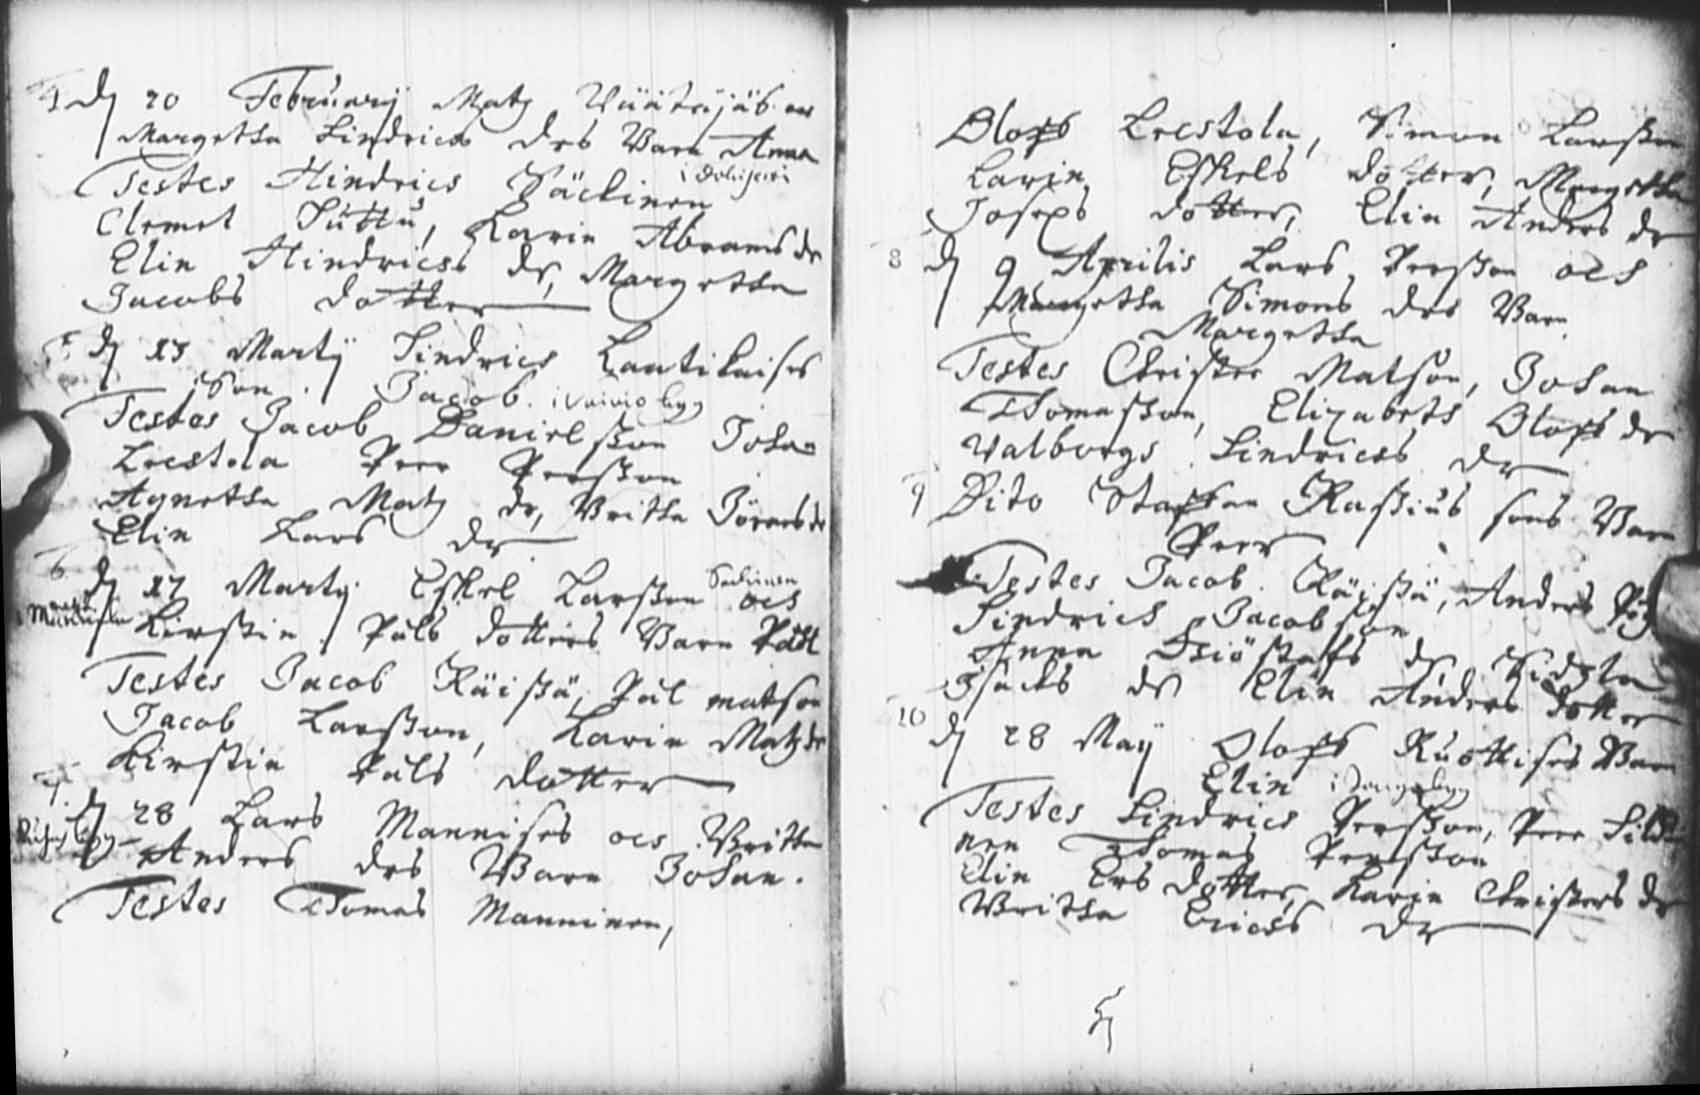 d 20 Februarij Matz
Margetha Hindrics drs Barn Anna
Testes Hindrics Säckinen
Clemet Huttu, Karin Abrams dr
Elin Hindricss dr, Margetha
Jacobs dotter
d 13 Martij Hindrics Lautikaises
Son Jacob
Testes Jacob Danielsson Johan
Leestola Peer Persson
Agnetha Matz dr, Britha Jörans dr
Elin Lars dr
6 d 17 Martij Eskel Larsson Säckinen och
Kirstin Påls dotters Barn Påhl
Testes Jacob Räissä, Pål matson
Jacob Larsson, Karin Matz dr
Kirstin Påls dotter
7 d 28 Lars Mannises och Britha
Anders drs Barn Johan.
Testes Thomas Manninen,
Olofs Leestola, Simon Larsson
Karin Eskels dotter, Margetha
Joseps dotter, Elin Anders dr
8 d 9 Aprilis Lars Persson och
Margetha Simons drs Barn
Margetha
Testes Christer Matson, Johan
Thomasson, Elizabeth Olofs dr
Valborgs Hindricss dr
9 Dito Staffan Rassius sons Barn
Peer
Testes Jacob Räissä, Anders
Hindrich Jacobson
Anna Giöstafs dr
Isacks dr Elin Anders dotter
10 d 28 Maij Olofs Ruottises Barn
Elin
Testes Hindrics Persson, Peer
nen Thomas Persson
Elin Ers dotter, Karin Christers dr
Britha Ericss dr